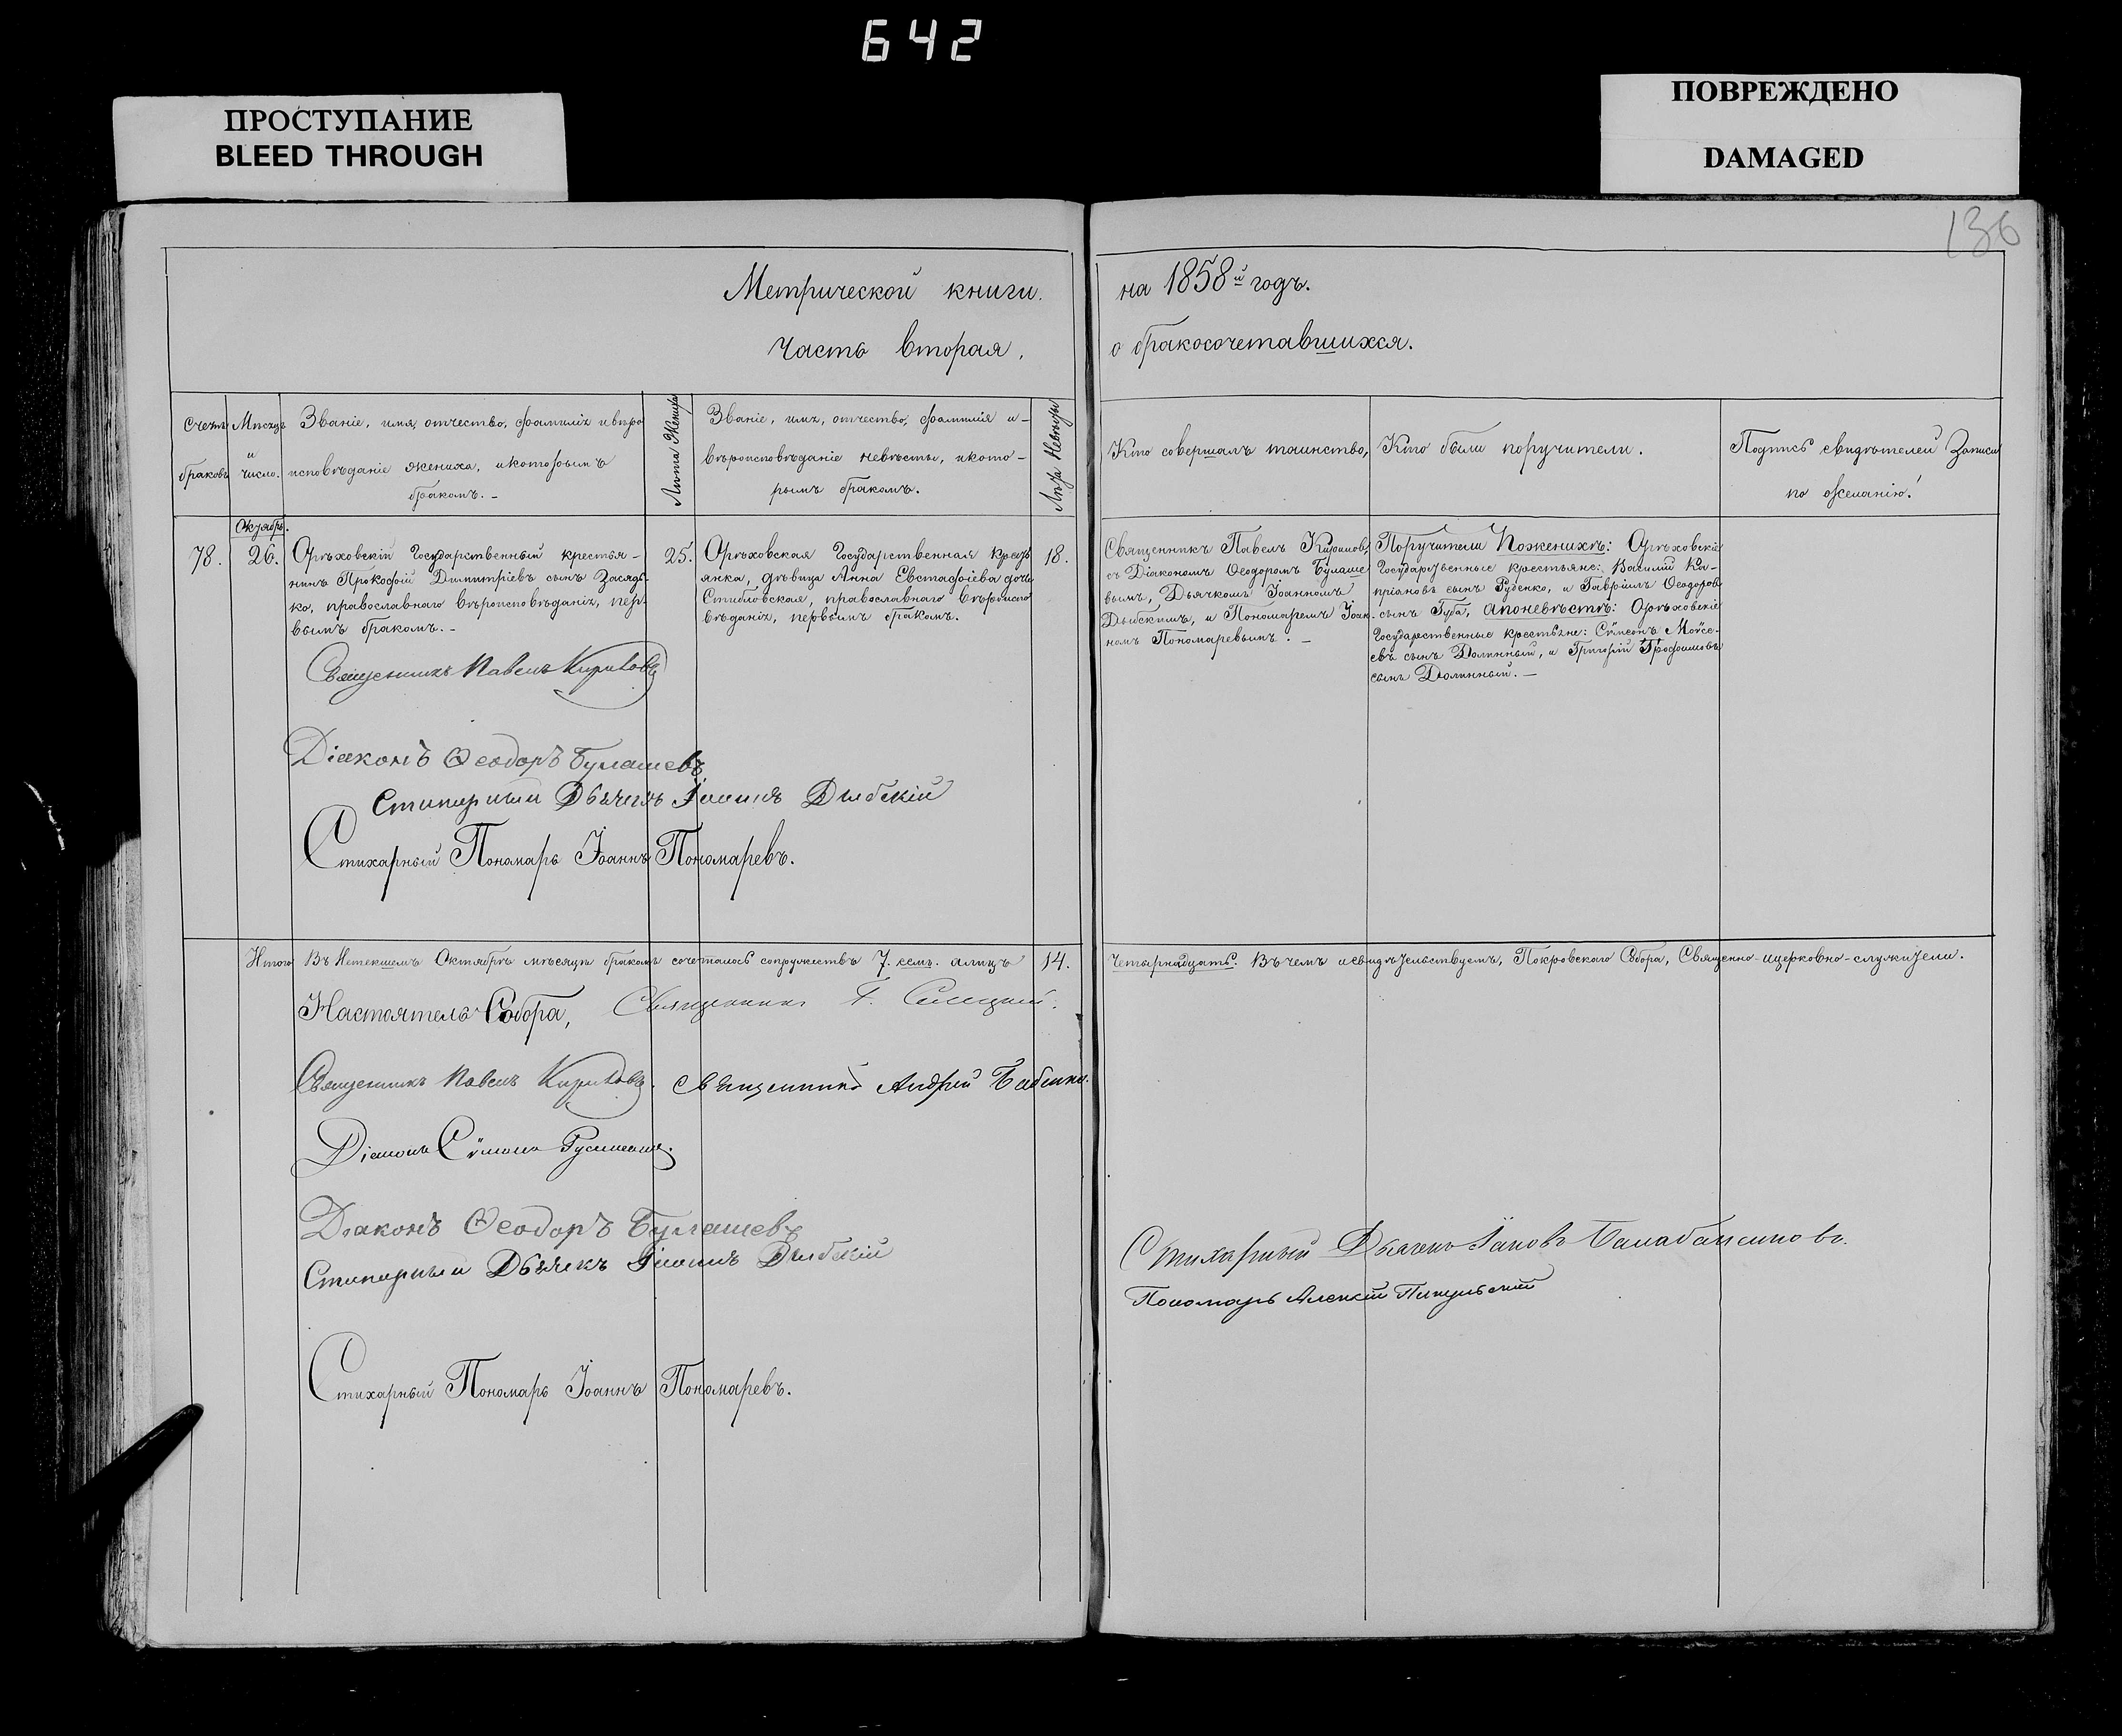 642
ПРОСТУПАНИЕ
BLEED THROUGH
ПОВРЕЖДЕНО
DAMAGED
136
Метрической книги.
на 1858й годъ.
Часть вторая.
о бракосочетавшихся.
Счетъ браковъ
Мѣсяцъ и число.
Званіе, имя, отчество, фамилія и вѣро
исповѣданіе жениха, и которымъ
бракомъ. -
Лѣта Жениха
Званіе, имя, отчество, фамилія и -
вѣроисповѣданіе невѣсты, и кото -
рымъ бракомъ.
Лѣта Невѣсты
Кто совершалъ таинство.
Кто были поручители.
Подпись свидѣтелей Записи
по желанію.
78.
Октябрь.
26.
Орѣховскій Государственный крестья -
нинъ Прокофій Димитріевъ сынъ Засядь-
ко, православнаго вѣроисповѣданія, пер-
вымъ бракомъ. -
25.
Орѣховская Государственная крест
янка, дѣвица Анна Евстафіева дочь
Стибловская, православнаго вѣроиспо
вѣданія, первымъ бракомъ.
18.
Священникъ Павелъ Кириковъ
съ Діакономъ Ѳеодоромъ Булаше
вымъ, Дьячкомъ Іоанномъ
Дыбскимъ, и Пономаремъ Іоан-
номъ Пономаревымъ. -
Поручители По женихѣ: Орѣховскіе
Государственные крестьяне: Василій Ки-
пріановъ сынъ Руденко, и Гавріилъ Ѳеодоровъ
сынъ Губа, а по невѣстѣ: Орѣховскіе
Государственные крестьяне: Сѵмеонъ Мойсе-
евъ сынъ Долинный, и Григорій Трофимовъ
сынъ Долинный. -
Священникъ Павелъ Кириковъ
Діаконъ Ѳеодоръ Булашевъ
Стихарный Дьячекъ Іоаннъ Дыбскій
Стихарный Пономарь Іоаннъ Пономаревъ.
Итого Въ Истекшемъ Октябрѣ мѣсяцѣ бракомъ сочеталось супружествъ 7. семь. а лицъ 14.
Четырнадцать. Въ чемъ и свидѣтельствуемъ, Покровскаго Собора, Священно-и церковно-служители.
Настоятель Собора, Священникъ
Священникъ Павелъ Кириковъ. Священникъ Андрей Бабенко.
Діаконъ Сѵмеонъ
Діаконъ Ѳеодоръ Булашевъ
Стихарный Дьячекъ Іоаннъ Дыбскій
Стихарный Дьячекъ Іаковъ
Пономарь Алексій
Стихарный Пономарь Іоаннъ Пономаревъ.